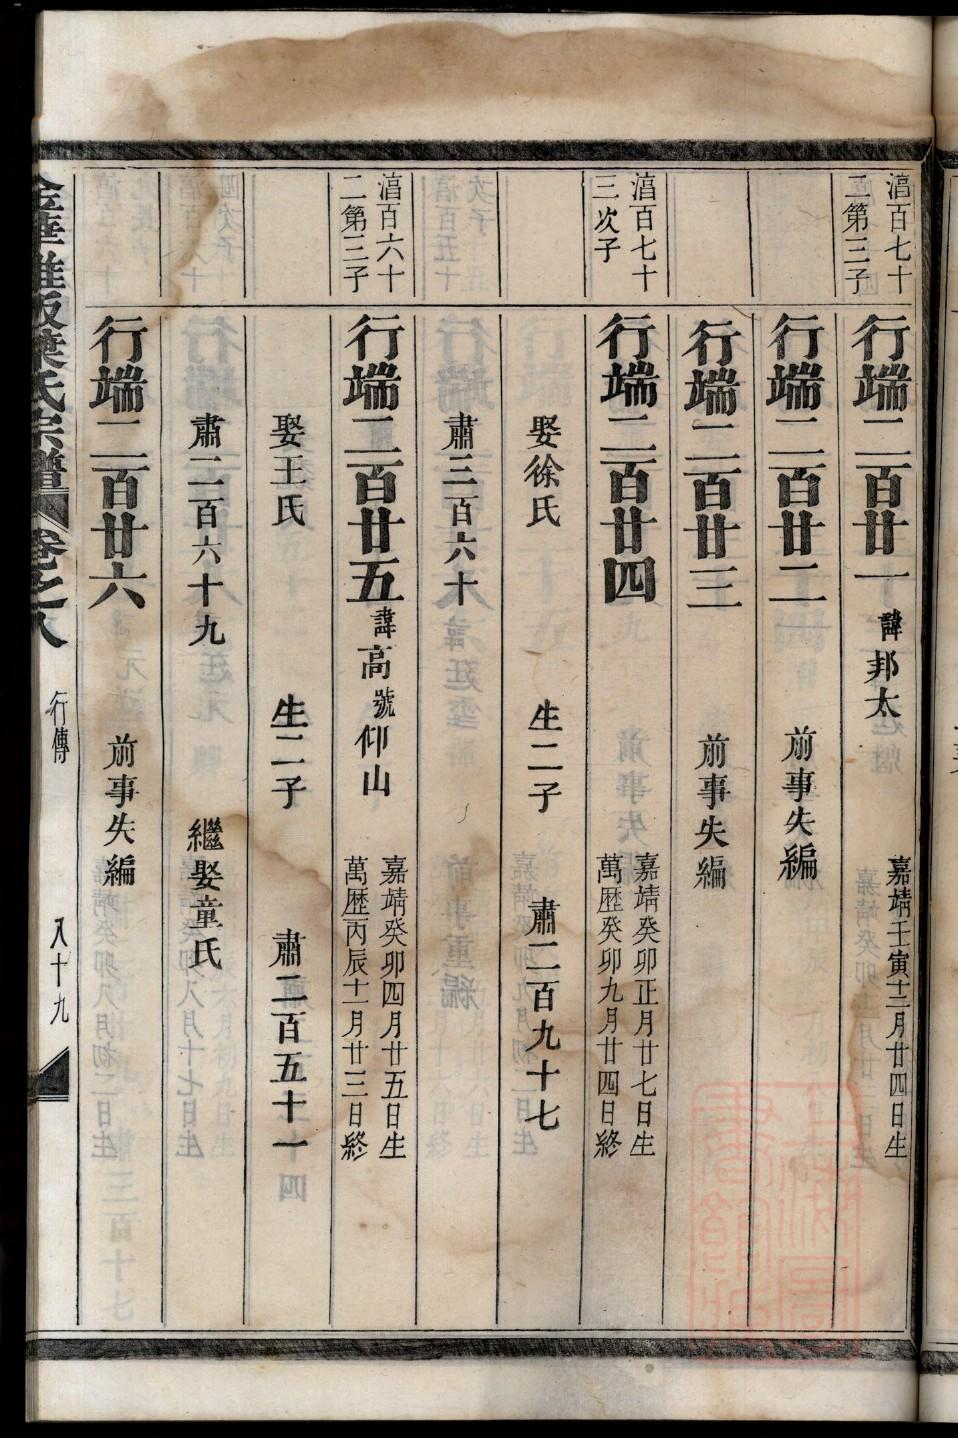 湻百七十
二第三子
行端二百廿一 諱邦太
嘉靖壬寅十二月廿四日生
行端二百廿二 前事失編
行端二百廿三 前事失編
湻百七十
三次子
行端二百廿四
嘉靖癸卯正月廿七日生
萬歷癸卯九月廿四日終
娶徐氏 生二子 肅二百九十七
肅三百六十
湻百六十
二第三子
行端二百廿五 諱高 號仰山
嘉靖癸卯四月廿五日生
萬歷丙辰十一月廿三日終
娶王氏 生二子 肅二百五十一
肅二百六十九 繼娶童氏
行端二百廿六 前事失編
葉氏宗譜 卷之八 行傳 八十九